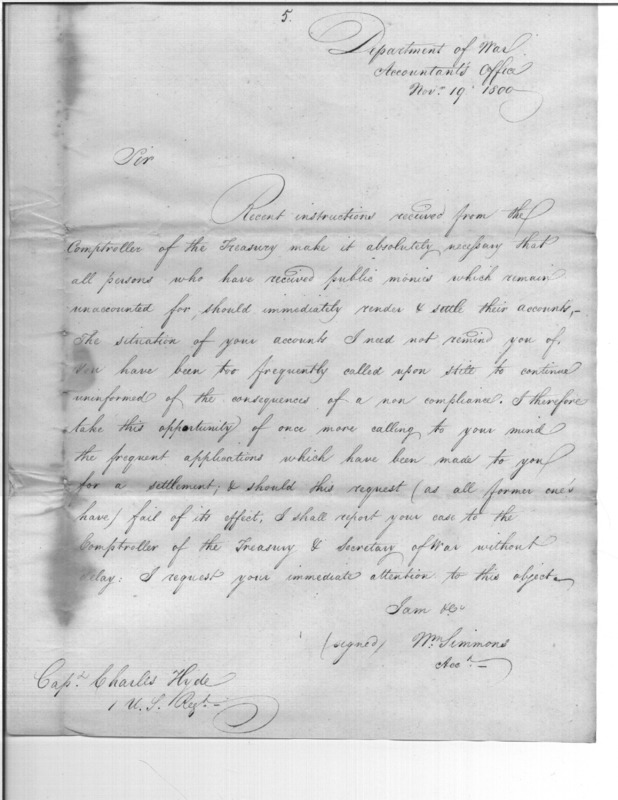 5.
Department of War
Accountant's Office
Novr. 19 1800
Sir
Recent instructions received from the
Comptroller of the Treasury make it absolutely necessary that
all persons who have received public monies which remain
unaccounted for, should immediately render & settle their accounts,—
The situation of your accounts I need not remind you of.
You have been too frequently called upon still to continue
uninformed of the consequences of a non compliance. I therefore
take this opportunity of once more calling to your mind
the frequent applications which have been made to you
for a settlement; & should this request (as all former one's
have) fail of its effect, I shall report your case to the
Comptroller of the Treasury & Secretary of War without
delay: I request your immediate attention to this object.
I am &c
(signed) Wm Simmons
Acct.
Capt. Charles Hyde
1 U. S. Regt.